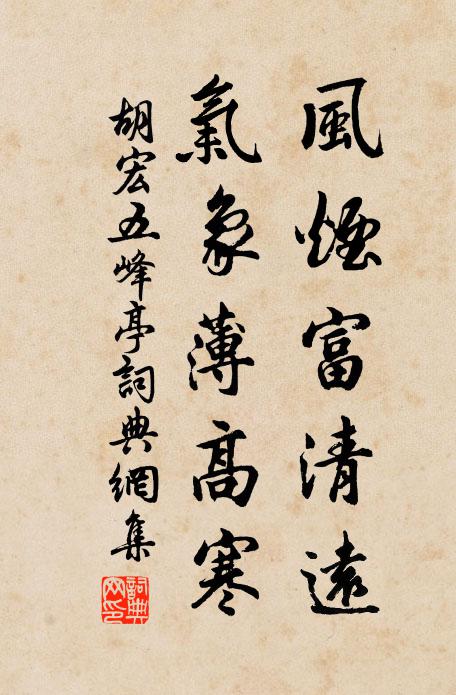 風煙富清遠
氣象薄高寒
胡宏五峰亭詞典網集
詞典网印